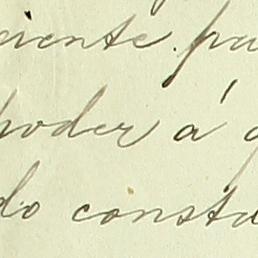 ciente pa
poder á q
do consta